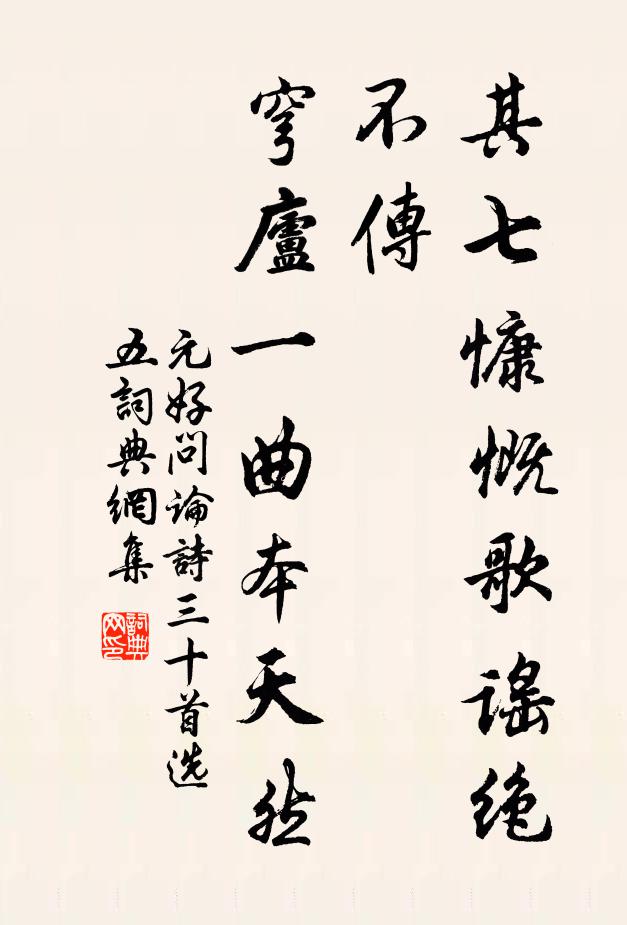 其七慷慨歌謡絶
不傳
穹廬一曲本天然
元好问論詩三十首选
五詞典網集
詞典网印